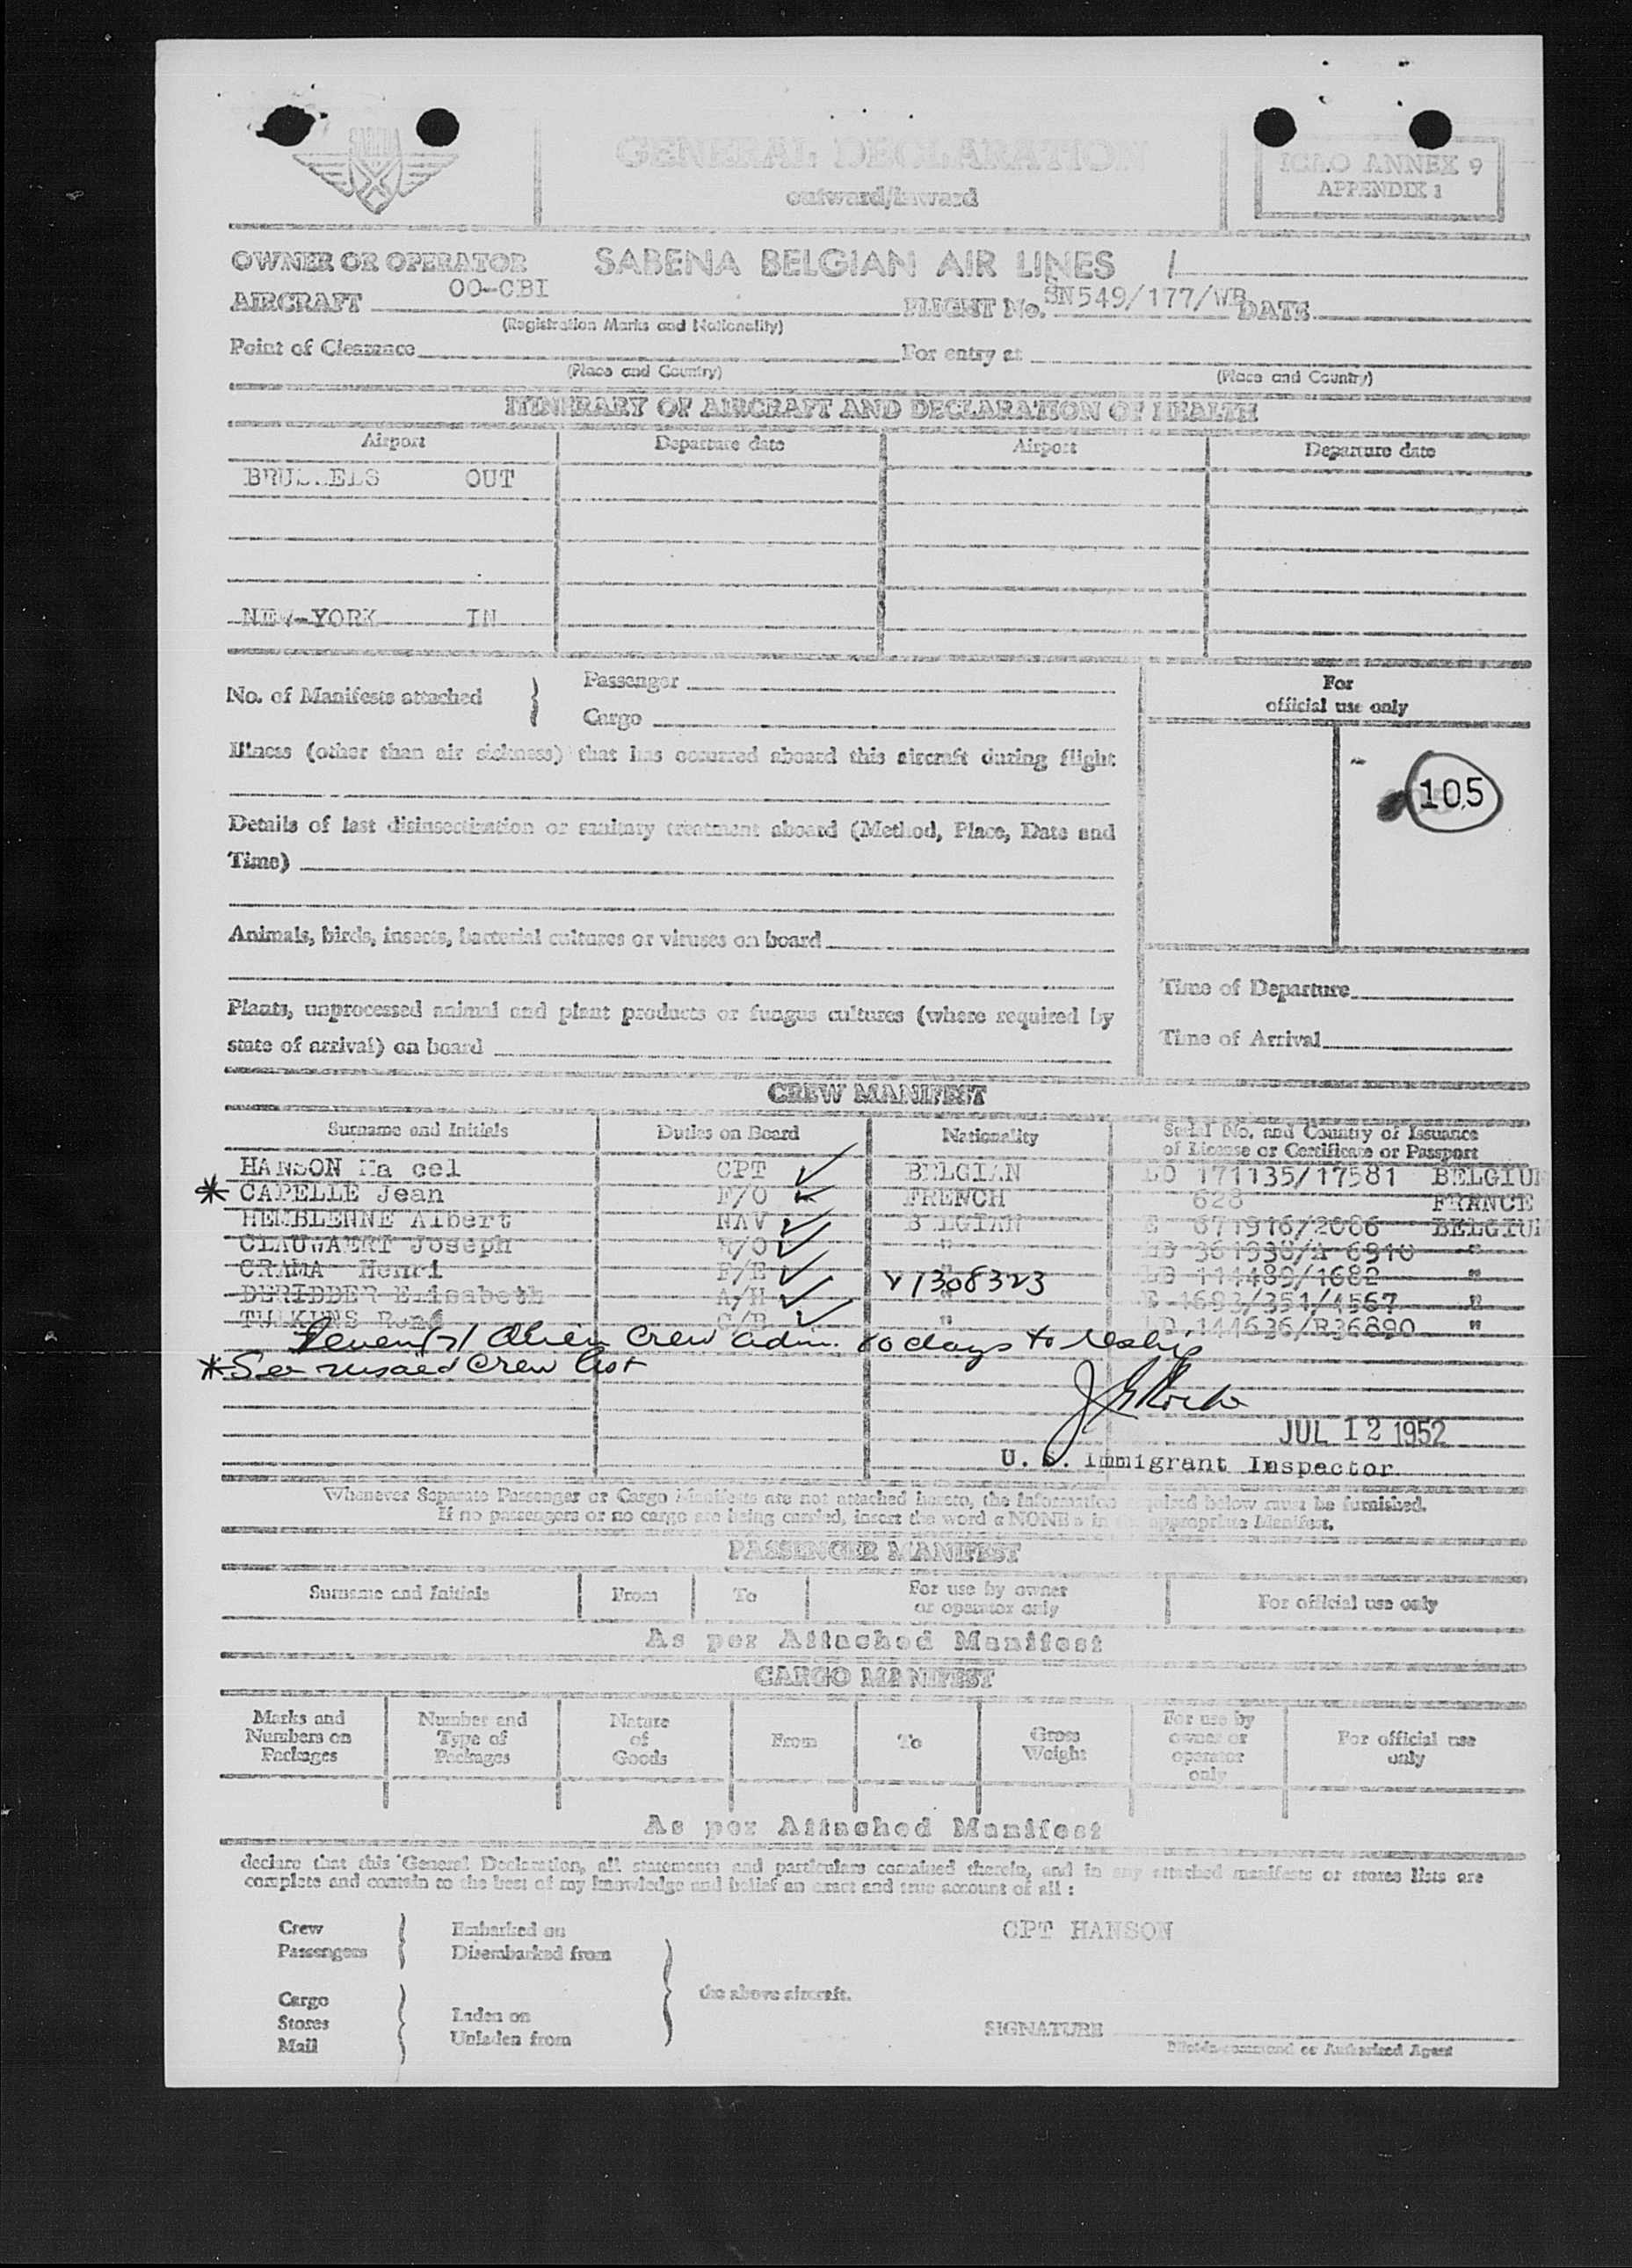 GENERAL DECLARATION
outward/inward
ICAO ANNEX 9
APPENDIX 1
OWNER OR OPERATOR SABENA BELGIAN AIR LINES
AIRCRAFT OO-CBI FLIGHT No. SN549/177/WB DATE
(Registration Marks and Nationality)
Point of Clearance For entry at
(Place and Country) (Place and Country)
ITINERARY OF AIRCRAFT AND DECLARATION OF HEALTH
Airport Departure date Airport Departure date
BRUSSELS OUT
NEW-YORK IN
No. of Manifests attached } Passenger
Cargo
For
official use only
Illness (other than air sickness) that has occurred aboard this aircraft during flight
105
Details of last disinsectization or sanitary treatment aboard (Method, Place, Date and
Time)
Animals, birds, insects, bacterial cultures or viruses on board
Time of Departure
Plants, unprocessed animal and plant products or fungus cultures (where required by
state of arrival) on board
Time of Arrival
CREW MANIFEST
Surname and Initials Duties on Board Nationality Serial No. and Country of Issuance
of License or Certificate or Passport
HANSON Ma cel CPT ✓ BELGIAN LD 171135/17581 BELGIUM
* CAPELLE Jean F/O ✓ FRENCH 628 FRANCE
HEMBLENNE Albert NAV ✓ BELGIAN E 671916/2086 BELGIUM
CLAUWAERT Joseph R/O ✓ " 361938/A 6910 "
CRAMA Henri F/E ✓ " LD 114489/1682 "
V1308323
DERIDDER Elisabeth A/H ✓ " E 1693/351/4567 "
TULKENS René C/B ✓ " LD 144636/R36890 "
Seven (7) Alien Crew adm. 60 days to reship
* See revised Crew list
JUL 12 1952
U. S. Immigrant Inspector
Whenever Separate Passenger or Cargo Manifests are not attached hereto, the information required below must be furnished.
If no passengers or no cargo are being carried, insert the word «NONE» in the appropriate Manifest.
PASSENGER MANIFEST
Surname and Initials From To For use by owner
or operator only For official use only
As per Attached Manifest
CARGO MANIFEST
Marks and
Numbers on
Packages
Number and
Type of
Packages
Nature
of
Goods
From To Gross
Weight
For use by
owner or
operator
only
For official use
only
As per Attached Manifest
declare that this General Declaration, all statements and particulars contained therein, and in any attached manifests or stores lists are
complete and contain to the best of my knowledge and belief an exact and true account of all :
Crew
Passengers
Embarked on
Disembarked from
CPT HANSON
Cargo
Stores
Mail
Laden on
Unladen from
the above aircraft.
SIGNATURE
Pilot-in-command or Authorized Agent